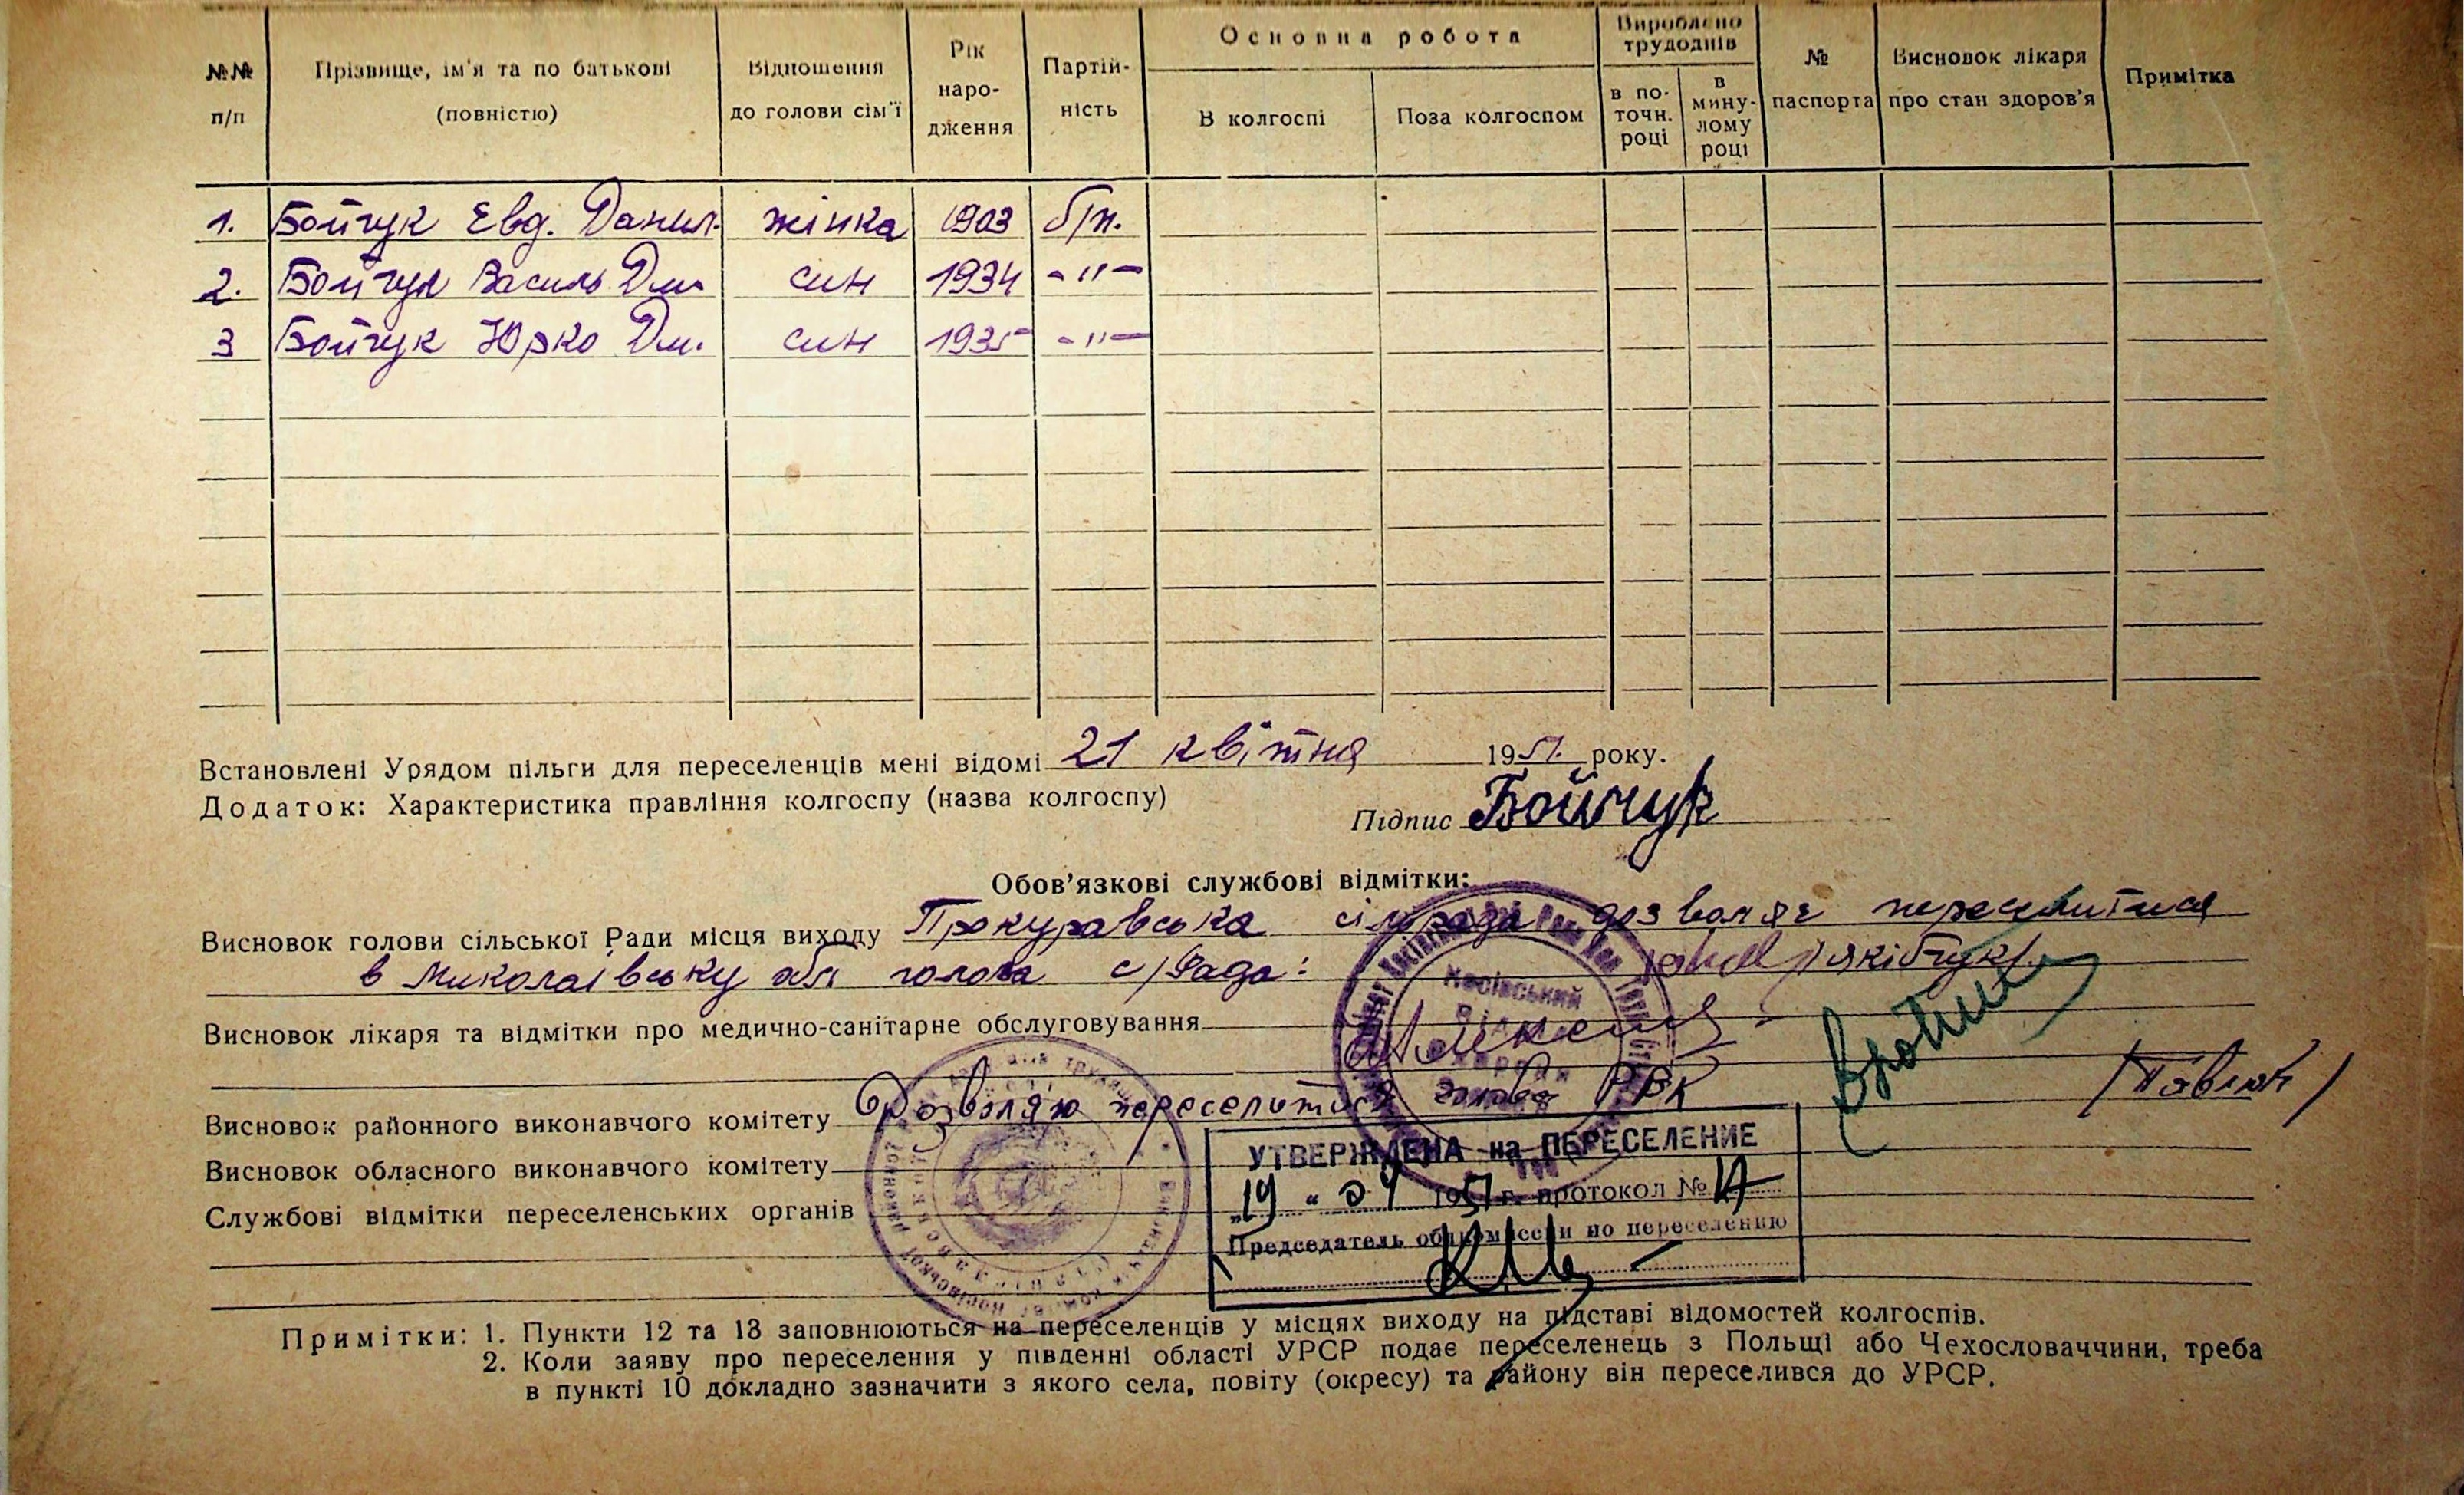 №№ п/п | Прізвище, ім'я та по батькові (повністю) | Відношення до голови сім'ї | Рік народження | Партійність | Основна робота | Вироблено трудоднів | № паспорта | Висновок лікаря про стан здоров'я | Примітка
В колгоспі | Поза колгоспом | в поточн. році | в минулому році
1. Бойчук Евд. Данил. жінка 1903 б/п.
2. Бойчук Василь Дм. син 1934 -"-
3 Бойчук Юрко Дм. син 1935 -"-
Встановлені Урядом пільги для переселенців мені відомі 21 квітня 1951. року.
Додаток: Характеристика правління колгоспу (назва колгоспу)
Підпис Бойчук
Обов'язкові службові відмітки:
Висновок голови сільської Ради місця виходу Прокуравська сільрада дозволяє переселитися
в Миколаївську обл голова с/Ради:
Висновок лікаря та відмітки про медично-санітарне обслуговування
Висновок районного виконавчого комітету Дозволяю переселитися голова РВК
УТВЕРЖДЕНА на ПЕРЕСЕЛЕНИЕ
Висновок обласного виконавчого комітету
„19 " 04 1951 г. протокол №
Службові відмітки переселенських органів
Председатель облкомиссии по переселению
Примітки: 1. Пункти 12 та 13 заповнюються на переселенців у місцях виходу на підставі відомостей колгоспів.
2. Коли заяву про переселення у південні області УРСР подає переселенець з Польщі або Чехословаччини, треба
в пункті 10 докладно зазначити з якого села, повіту (окресу) та району він переселився до УРСР.